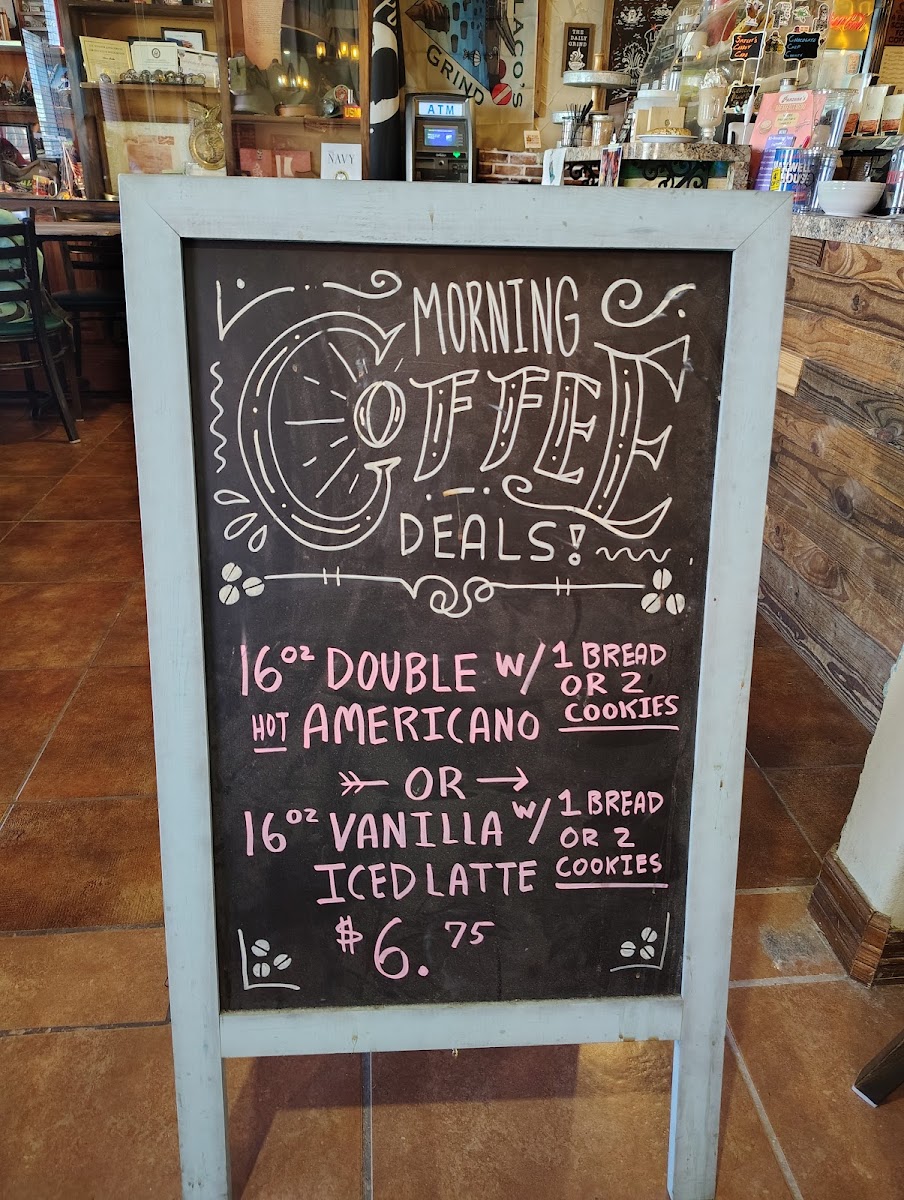 ATM
GRIND
LACO'S
THE
DAILY
GRIND
NAVY
MORNING
COFFEE
DEALS!
16oz DOUBLE w/ 1 BREAD
OR 2
COOKIES
HOT AMERICANO
OR
16oz VANILLA w/ 1 BREAD
OR 2
COOKIES
ICED LATTE
$6.75